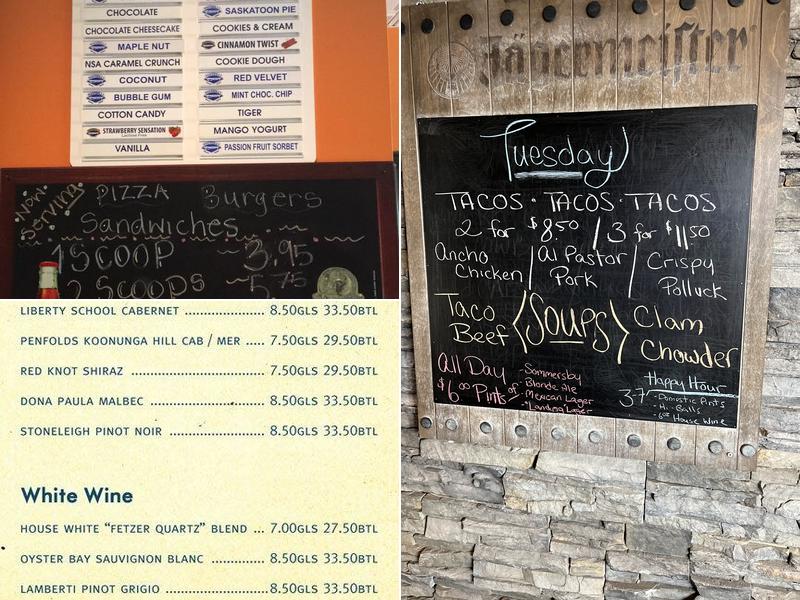 CHOCOLATE
CHOCOLATE CHEESECAKE
MAPLE NUT
NSA CARAMEL CRUNCH
COCONUT
BUBBLE GUM
COTTON CANDY
STRAWBERRY SENSATION
Lactose Free
VANILLA
SASKATOON PIE
COOKIES & CREAM
CINNAMON TWIST
COOKIE DOUGH
RED VELVET
MINT CHOC. CHIP
TIGER
MANGO YOGURT
PASSION FRUIT SORBET
Now Serving
PIZZA Burgers
Sandwiches
1 SCOOP ~ 3.95
2 Scoops ~ 5.75
LIBERTY SCHOOL CABERNET ...................... 8.50GLS 33.50BTL
PENFOLDS KOONUNGA HILL CAB / MER ..... 7.50GLS 29.50BTL
RED KNOT SHIRAZ ............................. 7.50GLS 29.50BTL
DONA PAULA MALBEC .......................... 8.50GLS 33.50BTL
STONELEIGH PINOT NOIR ...................... 8.50GLS 33.50BTL
White Wine
HOUSE WHITE “FETZER QUARTZ” BLEND ... 7.00GLS 27.50BTL
OYSTER BAY SAUVIGNON BLANC .............. 8.50GLS 33.50BTL
LAMBERTI PINOT GRIGIO ........................ 8.50GLS 33.50BTL
Jägermeister
Tuesday
TACOS · TACOS · TACOS
2 for $8.50 / 3 for $11.50
Ancho Chicken / Al Pastor Pork / Crispy Polluck
Taco Beef < Soups > Clam Chowder
All Day
$6.00 Pints of
- Sommersby
- Blonde Ale
- Mexican Lager
- Landing Lager
Happy Hour
3-7
- Domestic Pints
- Hi-Balls
- 6oz House Wine